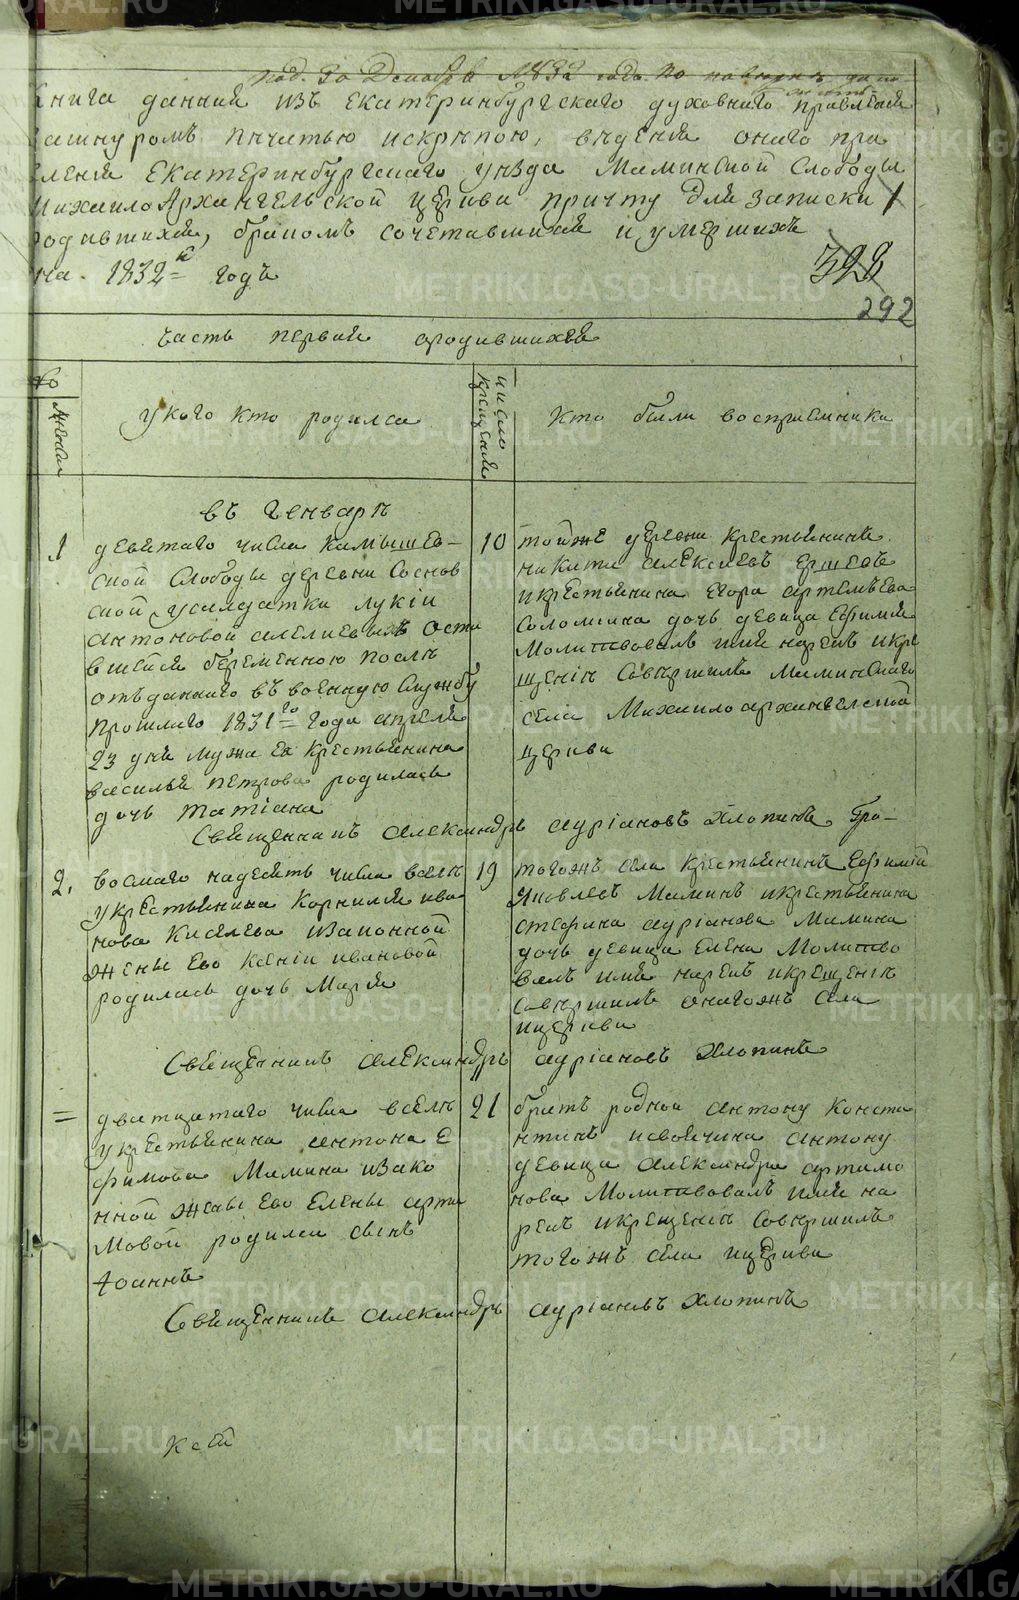 Книга данная изъ Екатеринбургскаго духовнаго правления
зашнуромъ пѣчатью искрѣпою, вѣдения онаго пра
вления Екатеринбургскаго уѣзда Маминской Слободы
Михаило Архангельской церкви причту для записки 1
родившихся, бракомъ сочетавшихся и умершихъ
на 1832й годъ
328
292
часть первая ородившихся
№
женск
укого кто родился
число
крещения
Кто были восприемники
въ Генварѣ
1
девятаго числа Камышев-
ской Слободы деревни Соснов
ской усолдатки лукіи
антоновой алелиевыхъ оста
вшейся беременною послѣ
отъданнаго въ военную Службу
прошлаго 1831го года апреля
23 дня мужа ея крестьянина
василья петрова родилась
дочь татіана
10
тойже деревни крестьянинъ
никита алексеевъ ершевъ
икрестьянина Егора артемьева
Соломина дочь девица Ефимия
Молитвовалъ имя нарекъ икре
щеніе Совершилъ Маминскаго
села Михаило архангелской
церкви
Священникъ Александръ адріановъ Хлопинъ
2.
восмаго надесять числа всѣлѣ
укрестьянина Корнилия ива
нова Киселева изаконной
жены Ево Ксеніи ивановой
родилась дочь Марія
19
тогожъ села крестьянинъ Ефимъ
Яковлевъ Маминъ икрестьянина
стефана адріанова Мамина
дочь девица Елена Молитво
валъ имя нарекъ икрещеніе
Совершилъ оногожъ села
ицеркви
Священникъ Александръ адріановъ Хлопинъ
=
дватцатаго числа всѣлѣ
укрестьянина антона е
фимова Мамина изако
нной жены Ево Елены арта
Мовой родился сынъ
Іоаннъ
21
братъ родной антону Конста
нтинъ исвоячина антону
девица Александра артамо
нова Молитвовалъ имя на
рекъ икрещеніе Совершилъ
тогожъ села ицеркви
Священникъ Александръ адріановъ Хлопинъ
METRIKI.GASO-URAL.RU